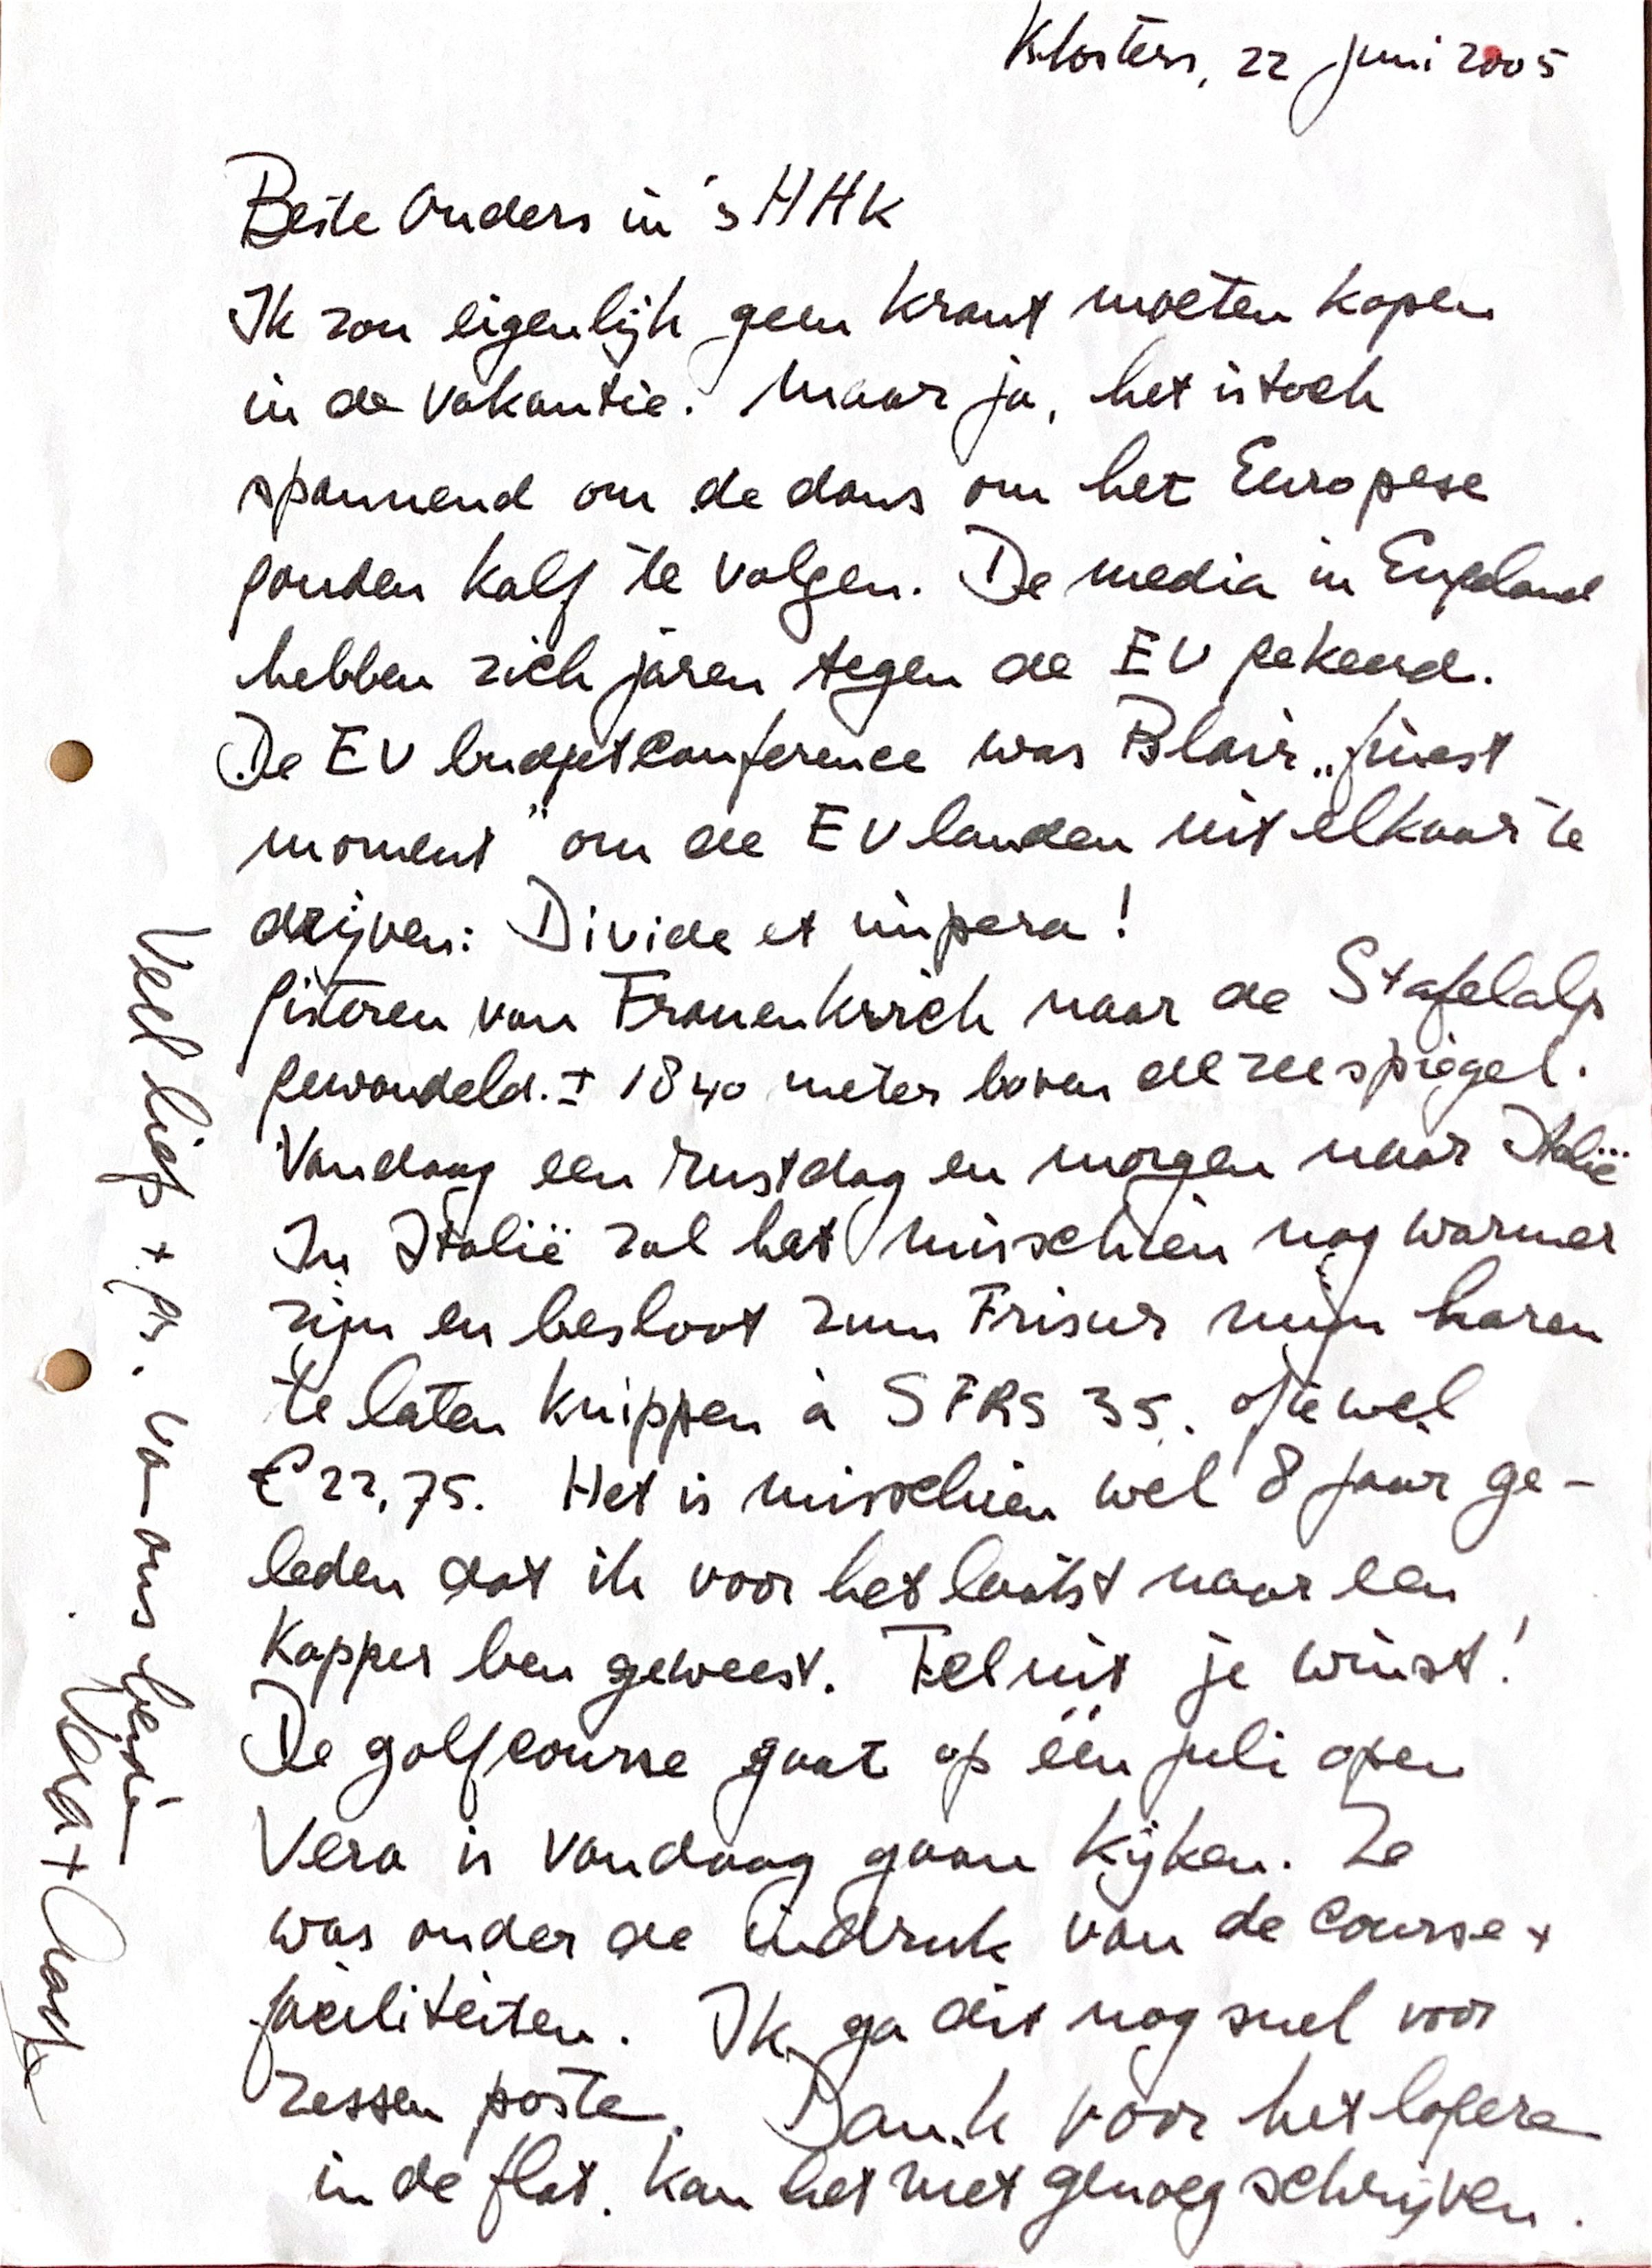 Klosters, 22 juni 2005
Beste Ouders in 's HHK
Ik zou eigenlijk geen krant moeten kopen
in de vakantie. Maar ja, het is toch
spannend om de dans om het Europese
gouden kalf te volgen. De media in Engeland
hebben zich jaren tegen de EU gekeerd.
De EU budgetconference was Blair „finest
moment" om de EU landen uit elkaar te
drijven: Divide et impera!
Gisteren van Frauenkirch naar de Stafelalp
gewandeld. ± 1840 meter boven de zeespiegel.
Vandaag een rustdag en morgen naar Italië
In Italië zal het misschien nog warmer
zijn en besloot zum Frisur mijn haren
te laten knippen à SFRS 35. oftewel
€ 22,75. Het is misschien wel 8 jaar ge-
leden dat ik voor het laatst naar een
kapper ben geweest. Tel uit je winst!
De golfcourse gaat op één juli open
Vera is vandaag gaan kijken. Ze
was onder de indruk van de course +
faciliteiten. Ik ga dit nog snel voor
zessen poste. Dank voor het logere
in de flat. Kan het niet genoeg schrijven.
Veel liefs + gr. va- ons beide
Vera +